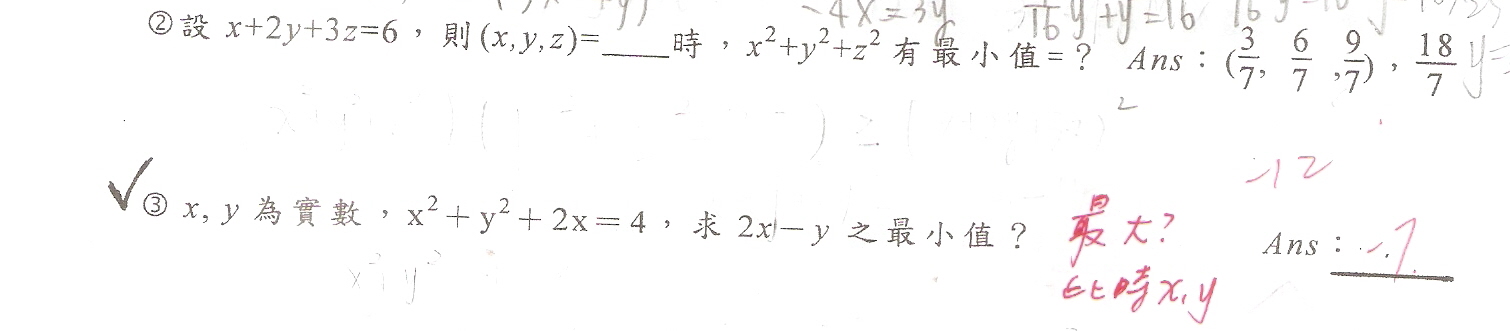 -4x=3y
16y+y=16
②設 x+2y+3z=6，則(x,y,z)=____時，x²+y²+z² 有最小值=？ Ans：(3/7, 6/7, 9/7)，18/7
-12
✓③ x, y 為實數，x²+y²+2x=4，求 2x-y 之最小值？ 最大？ Ans：-7
此時x,y